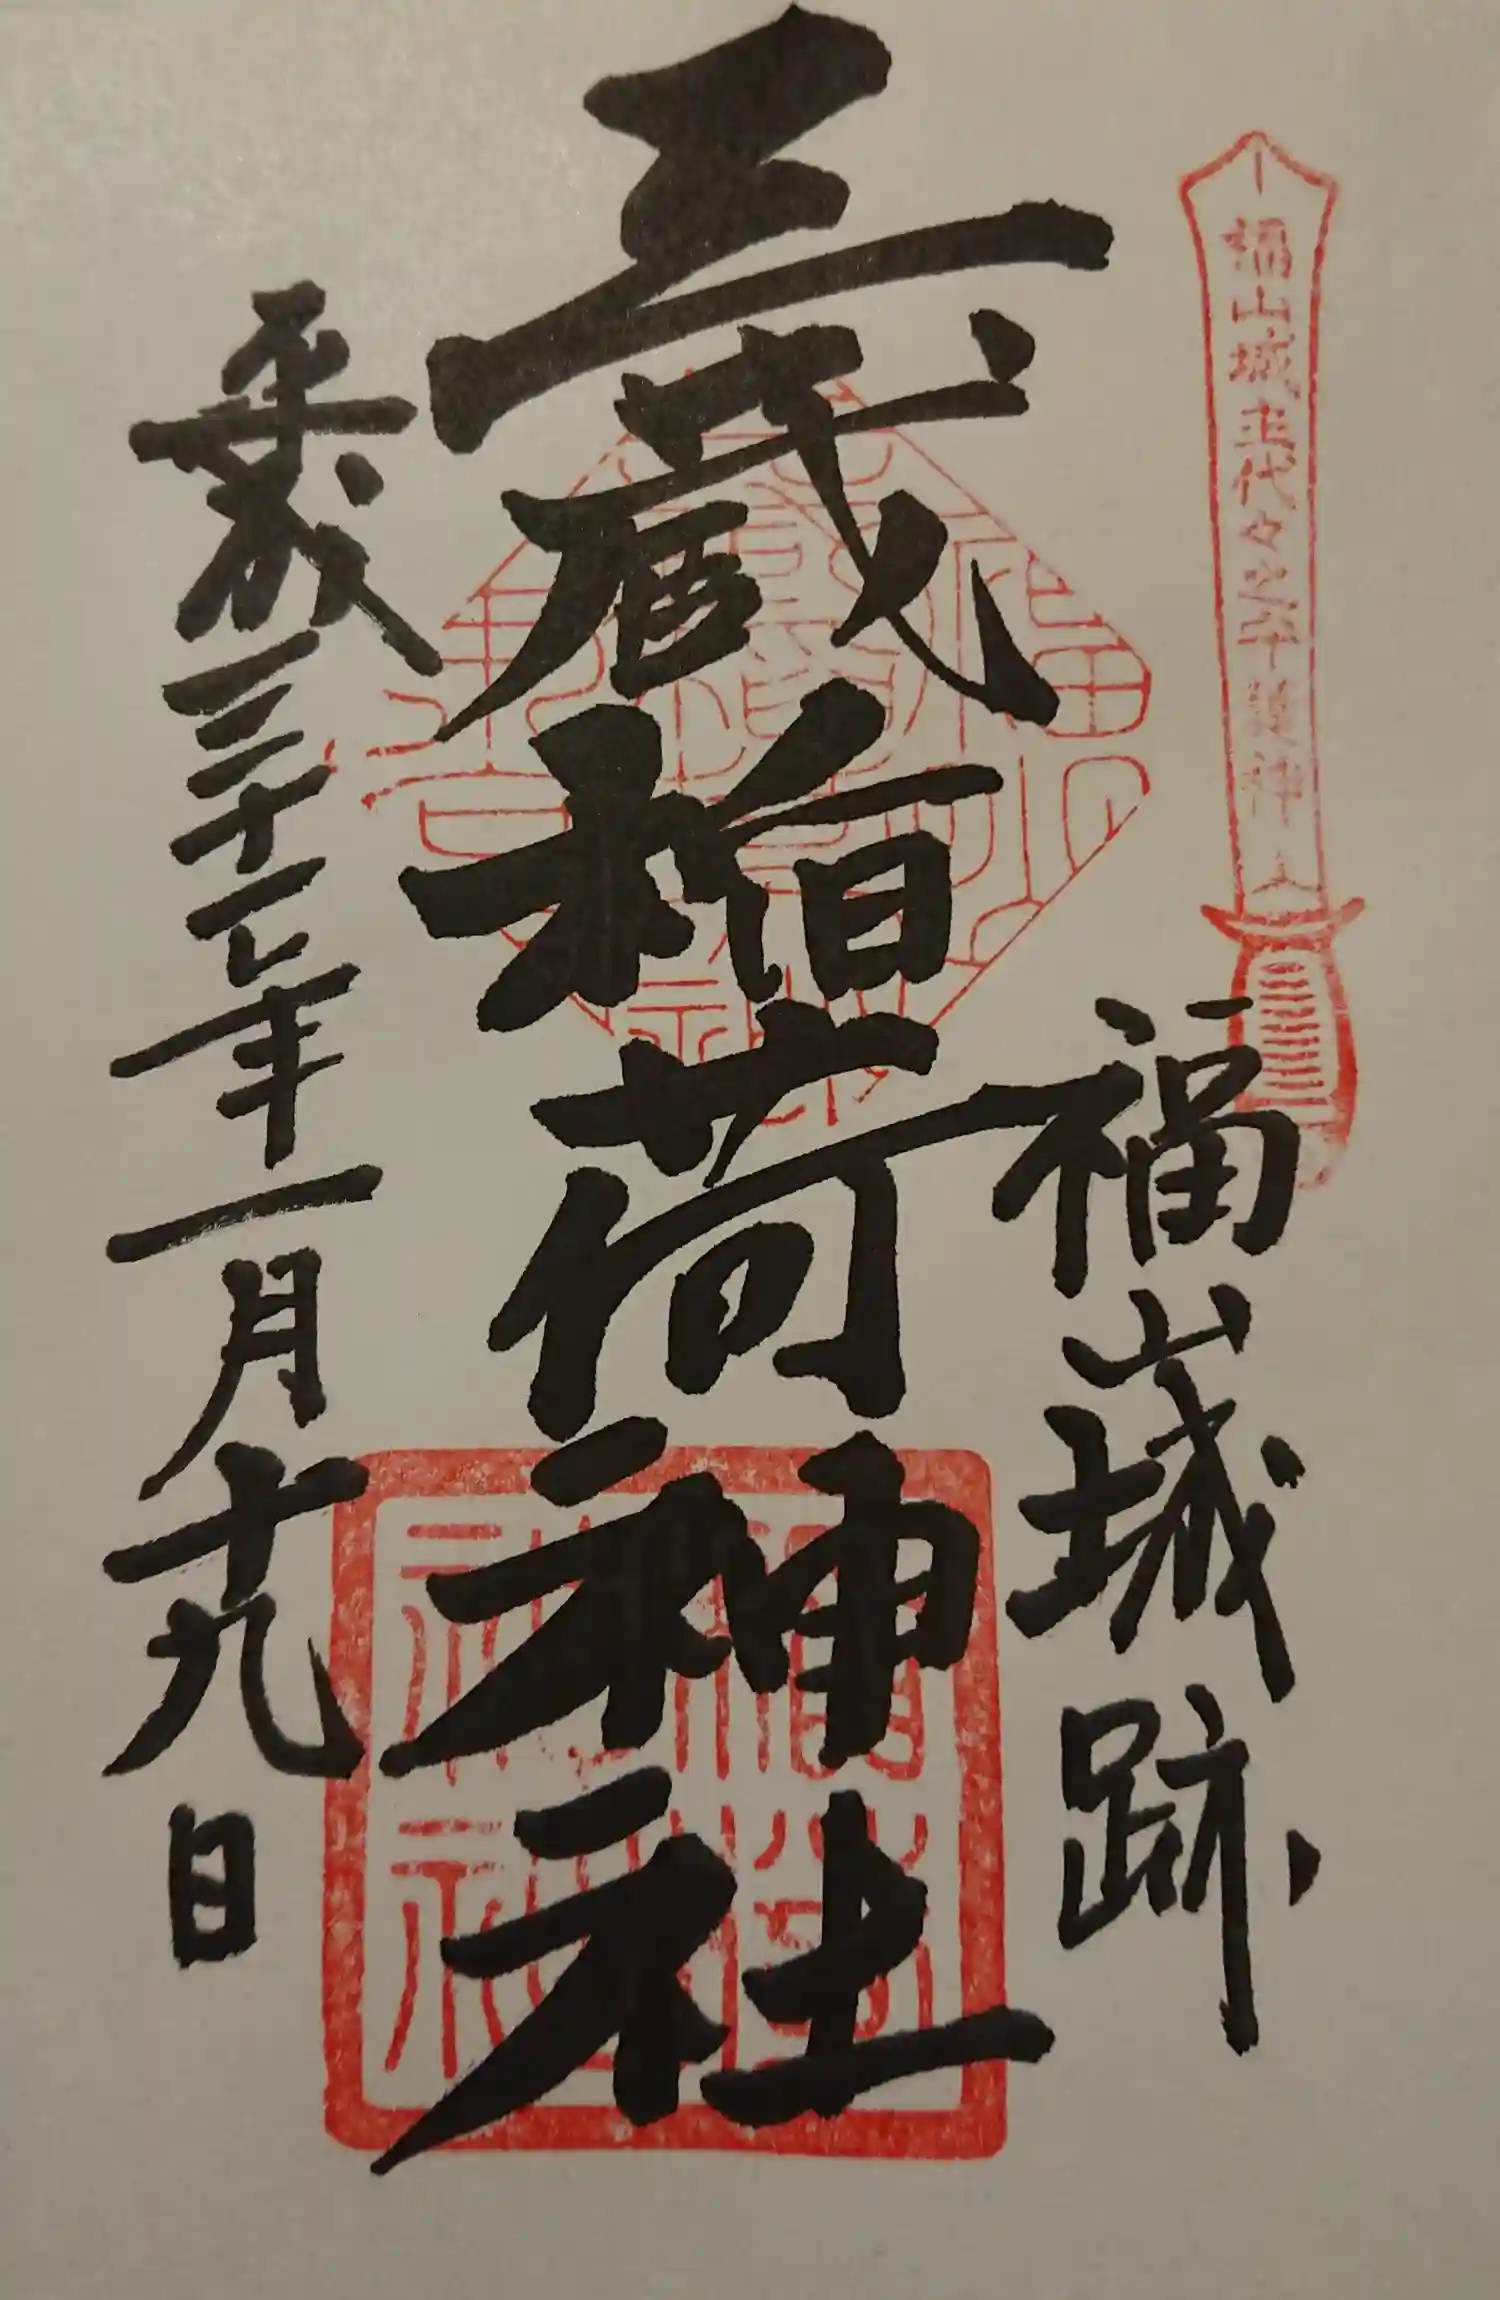 福山城主代々之
福山城跡
三蔵稲荷神社
平成三十一年一月十九日